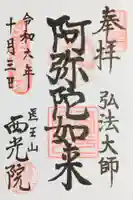 奉拝
弘法大師
阿弥陀如来
医王山
西光院
令和六年
十月三日